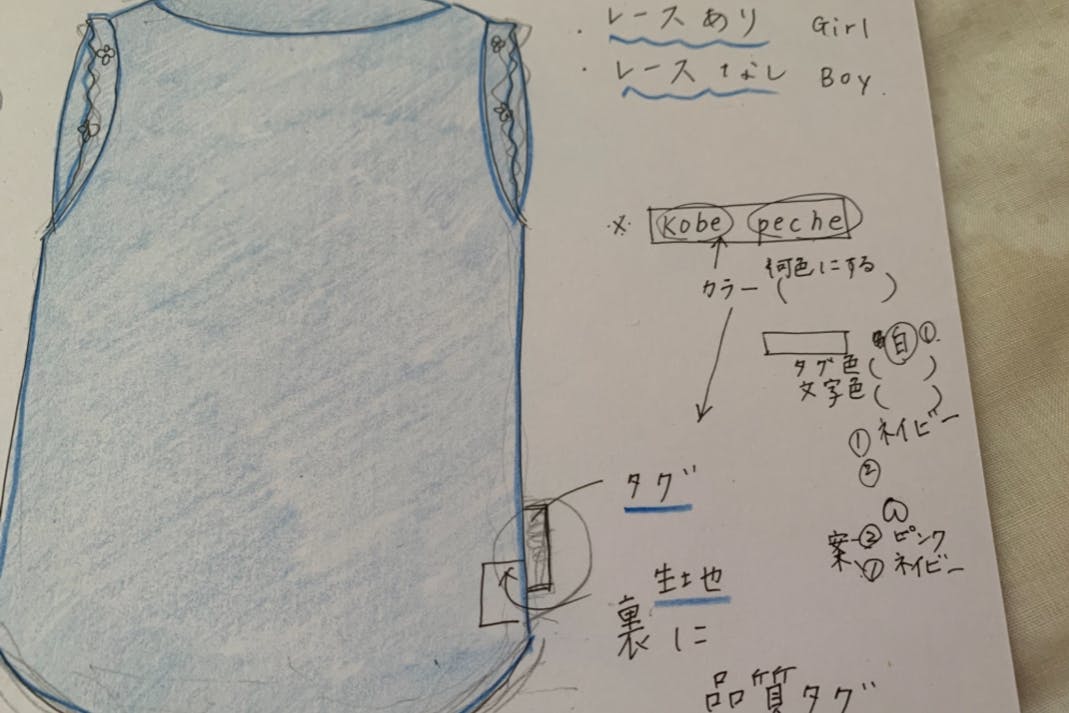 ・レースあり Girl
・レースなし Boy.
※ kobe peche
カラー (何色にする )
白 ①
タグ色( )
文字色( )
① ネイビー
②
タグ
案 ② ピンク
① ネイビー
生土也
裏に
品質タグ